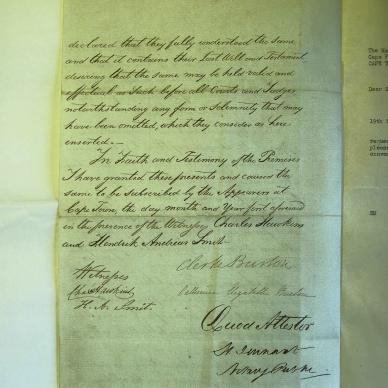 declared that they fully understood the same,
and that it contains their Last Will and Testament
desiring that the same may be held valid and
effectual as such before all Courts and Judges
notwithstanding any form or solemnity that may
have been omitted, which they consider as here
inserted.
In Faith and Testimony of the Premises
I have granted these presents and caused the
same to be subscribed by the Appearers at
Cape Town, the day month and Year first aforesaid
in the presence of the Witnesses, Charles Hawkins
and Hendrik Andries Smit.
Witnesses
H. A. Smit.
Elizabeth
Quod Attestor
Notary Public
The
Cape
CAPE T
Dear S
19th